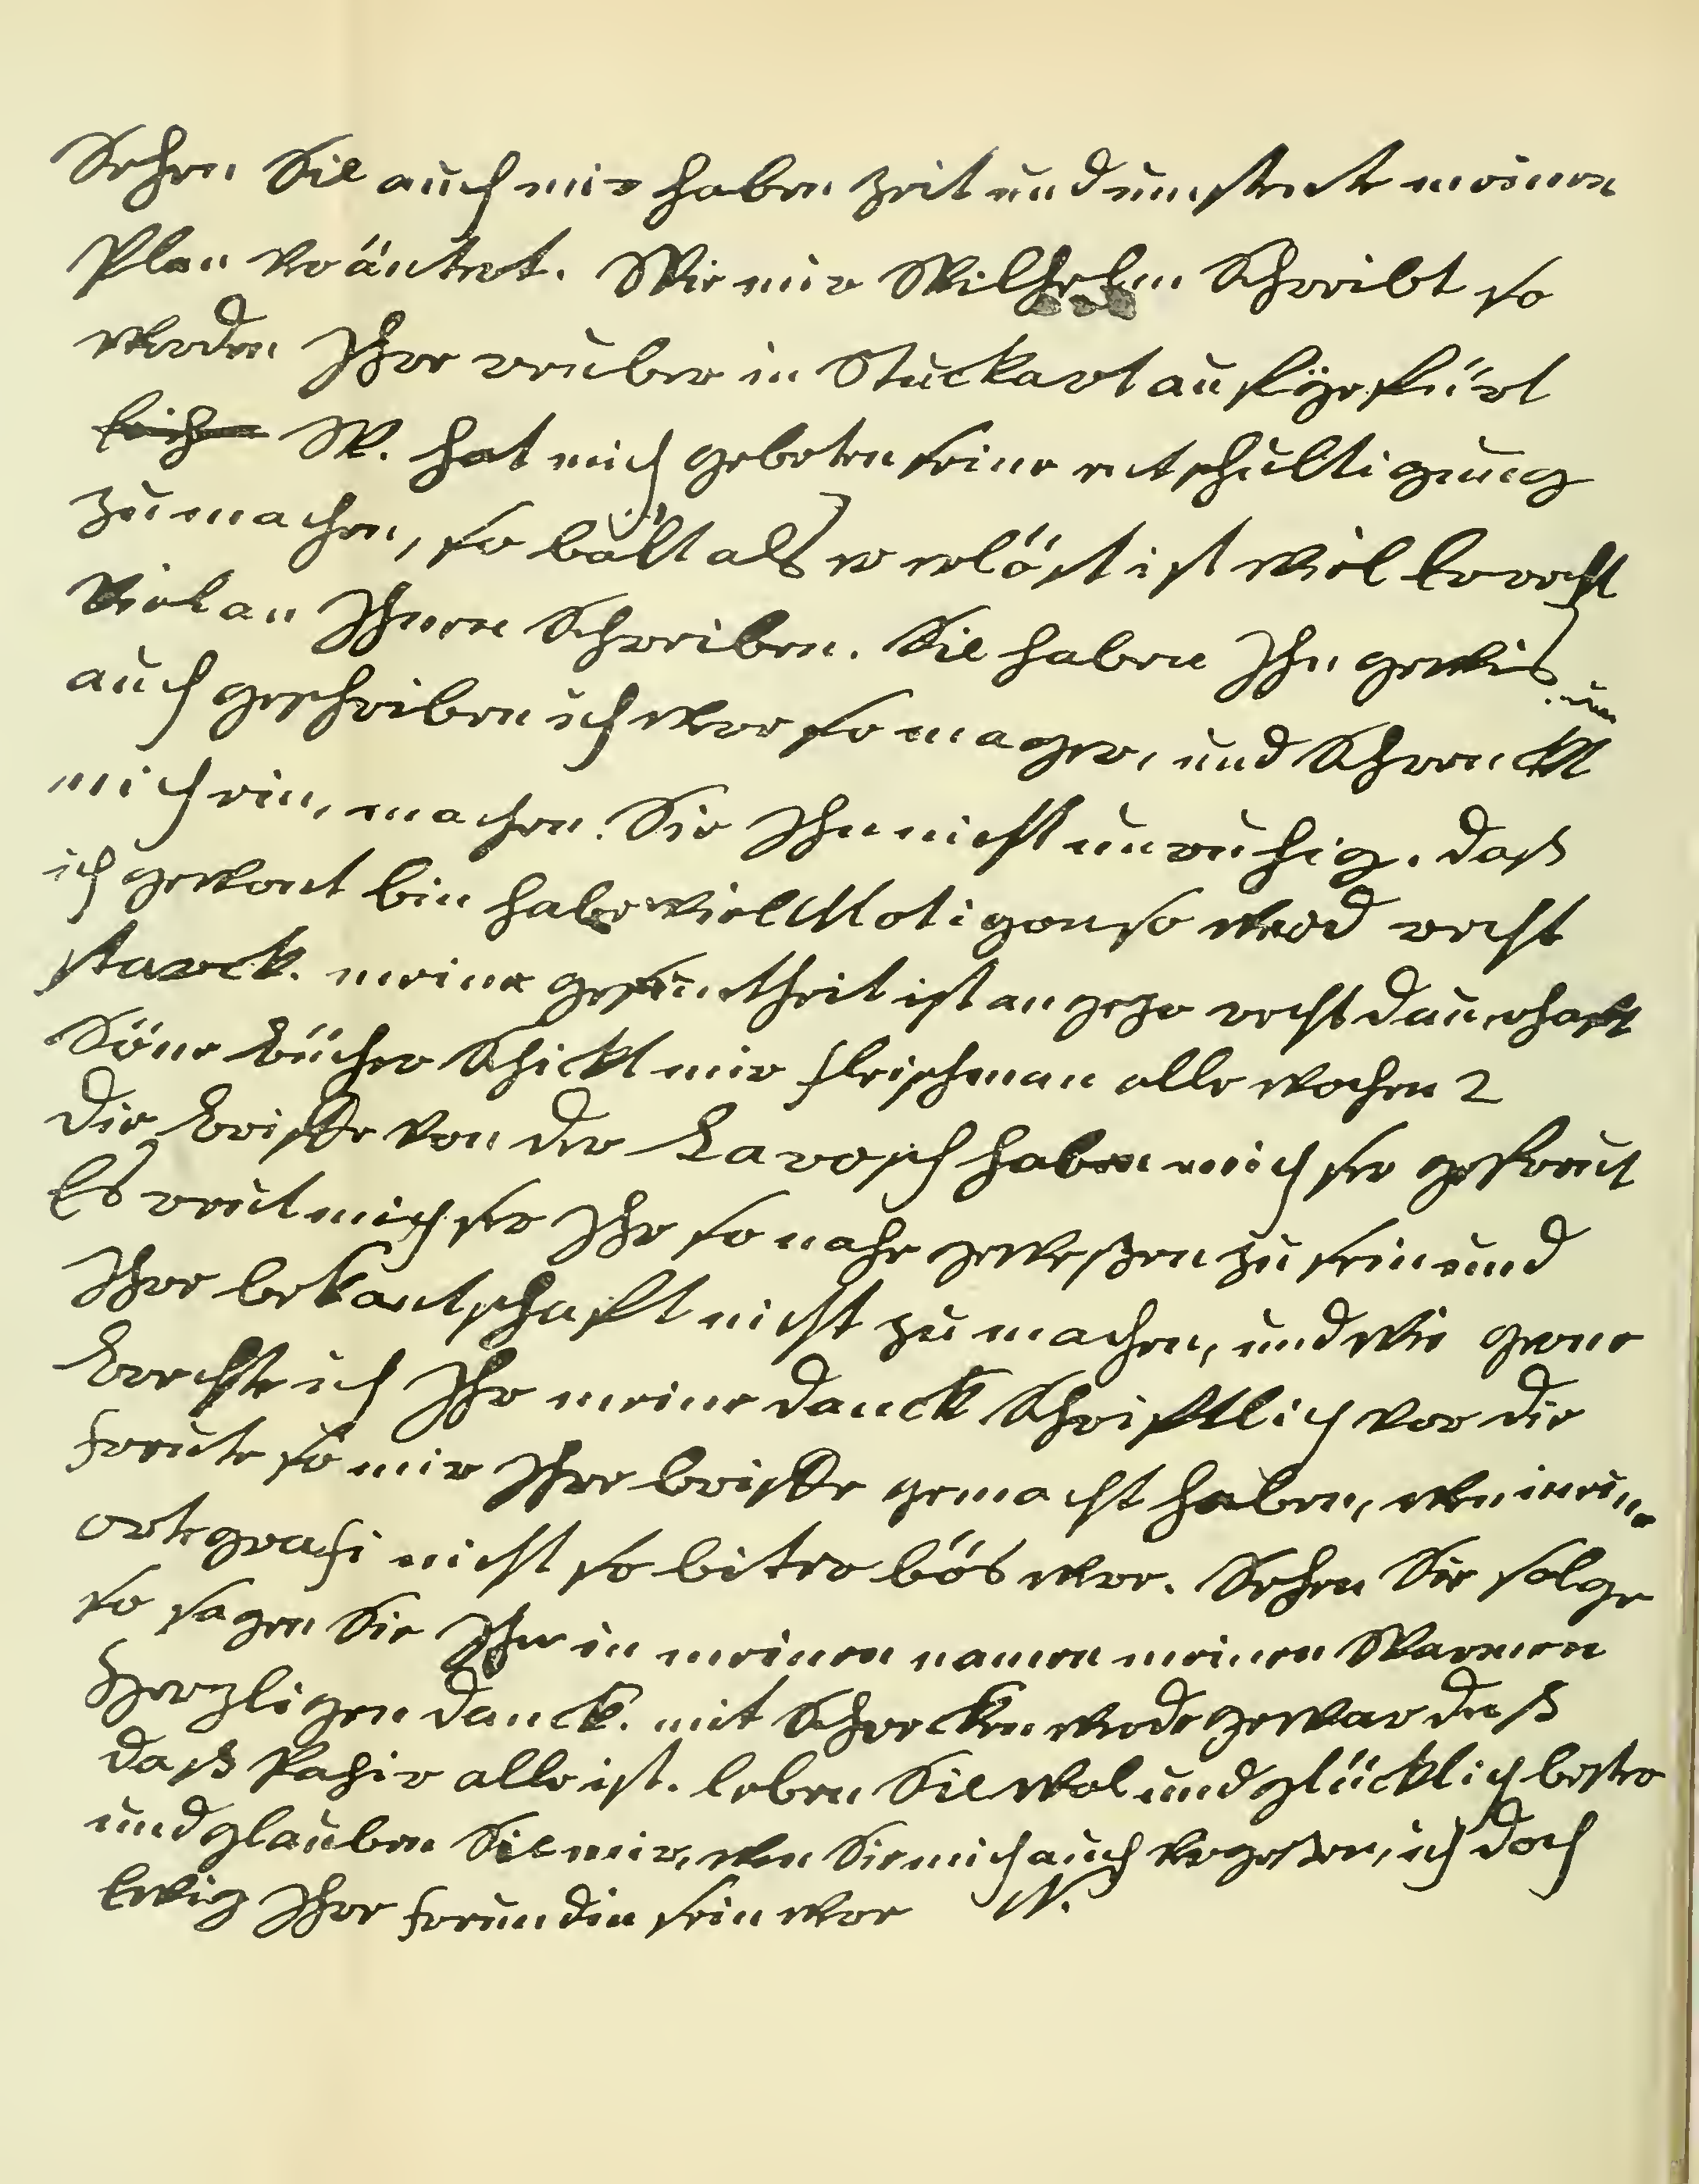 Sehen Sie auch mir haben zeit und umstente meinen
Plan veräntret. Wie mir Wilhelm Schreibt so
werden Ihre reuber in Stuckart aufgefürt
W. hat mich gebeten seine entschultigung
zu machen, so bält als er erlöst ist wiel Er recht
Viel an Ihnen Schreiben. Sie haben Ihn gewis
auch geschriben ich wer so mager, und Schrenckt
mich ein, machen Sie Ihn nicht unruhig. daß
ich gewont bin habe viel Motigon so werd recht
starck. meine gesuntheit ist an gezo recht dauerhaft
Söne Bücher Schickt mir fleischman alle wochen 2
die Briffe von der Larosch haben mich ser gefreut
Es reut mich ser Ihr so nahe geweßen zu sein und
Ihre bekantschaft nicht zu machen, und wie gerne
Brechte ich Ihr meine danck Schriftlich vor die
freute so mir Ihre briffe gemacht haben, wen meine
ortegrafi nicht so biter bös wer. Sehen Sie solge
so sagen Sie Ihr in meinen namen meinen Warmen
Herzligen danck. mit Schrecken werde gewar daß
daß Pahir alle ist. leben Sie wol und glücklich bester
und glauben Sie mir, wen Sie mich auch vergeßen, ich doch
Ewig Ihre freundin sein wer N.